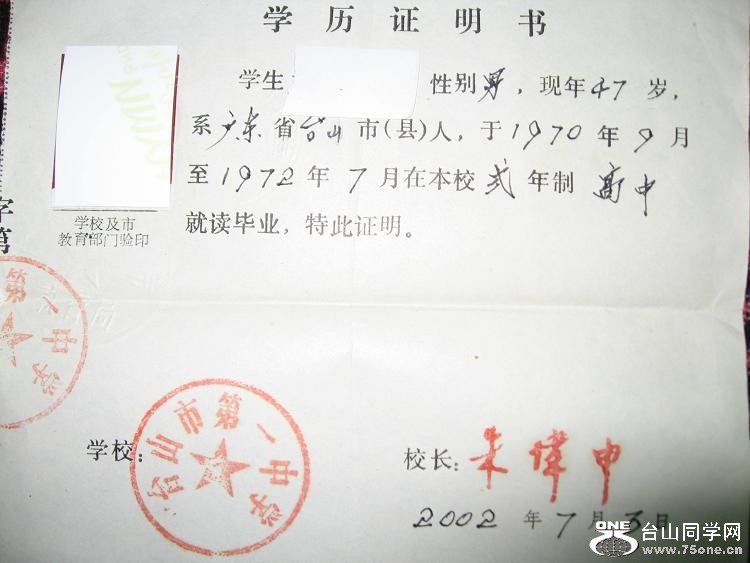 学历证明书
学生 性别男，现年47岁，
系广东省台山市(县)人，于1970年9月
至1972年7月在本校弍年制高中
就读毕业，特此证明。
学校及市
教育部门验印
字第
第一中学
学校：
台山市第一中学
校长：朱伟申
2002年7月3日
ONE 台山同学网
www.75one.cn